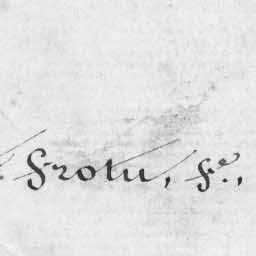 Frotu, Fe.,